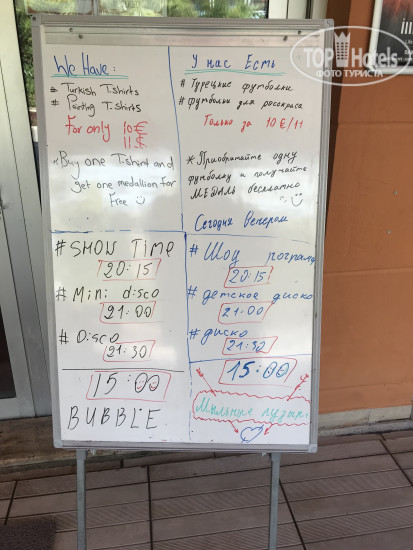 We Have:
# Turkish T.shirts
# Painting T.shirts
For only 10€
11$
*Buy one T.shirt and
get one medallion for
Free
# SHOW TIME
20:15
# Mini disco
21:00
# Disco
21:30
15:00
BUBBLE
У нас Есть
# Турецкие футболки
# футболки для россkраса
Только за 10 €/11
* Приобритайте одну
футболку и получайте
МЕДАЛЬ бесплатно
Сегодня Вечером
# Шоу
20:15
# детское диско
21:00
# диско
21:30
15:00
Мыльные пузыри
TopHotels
ФОТО ТУРИСТА